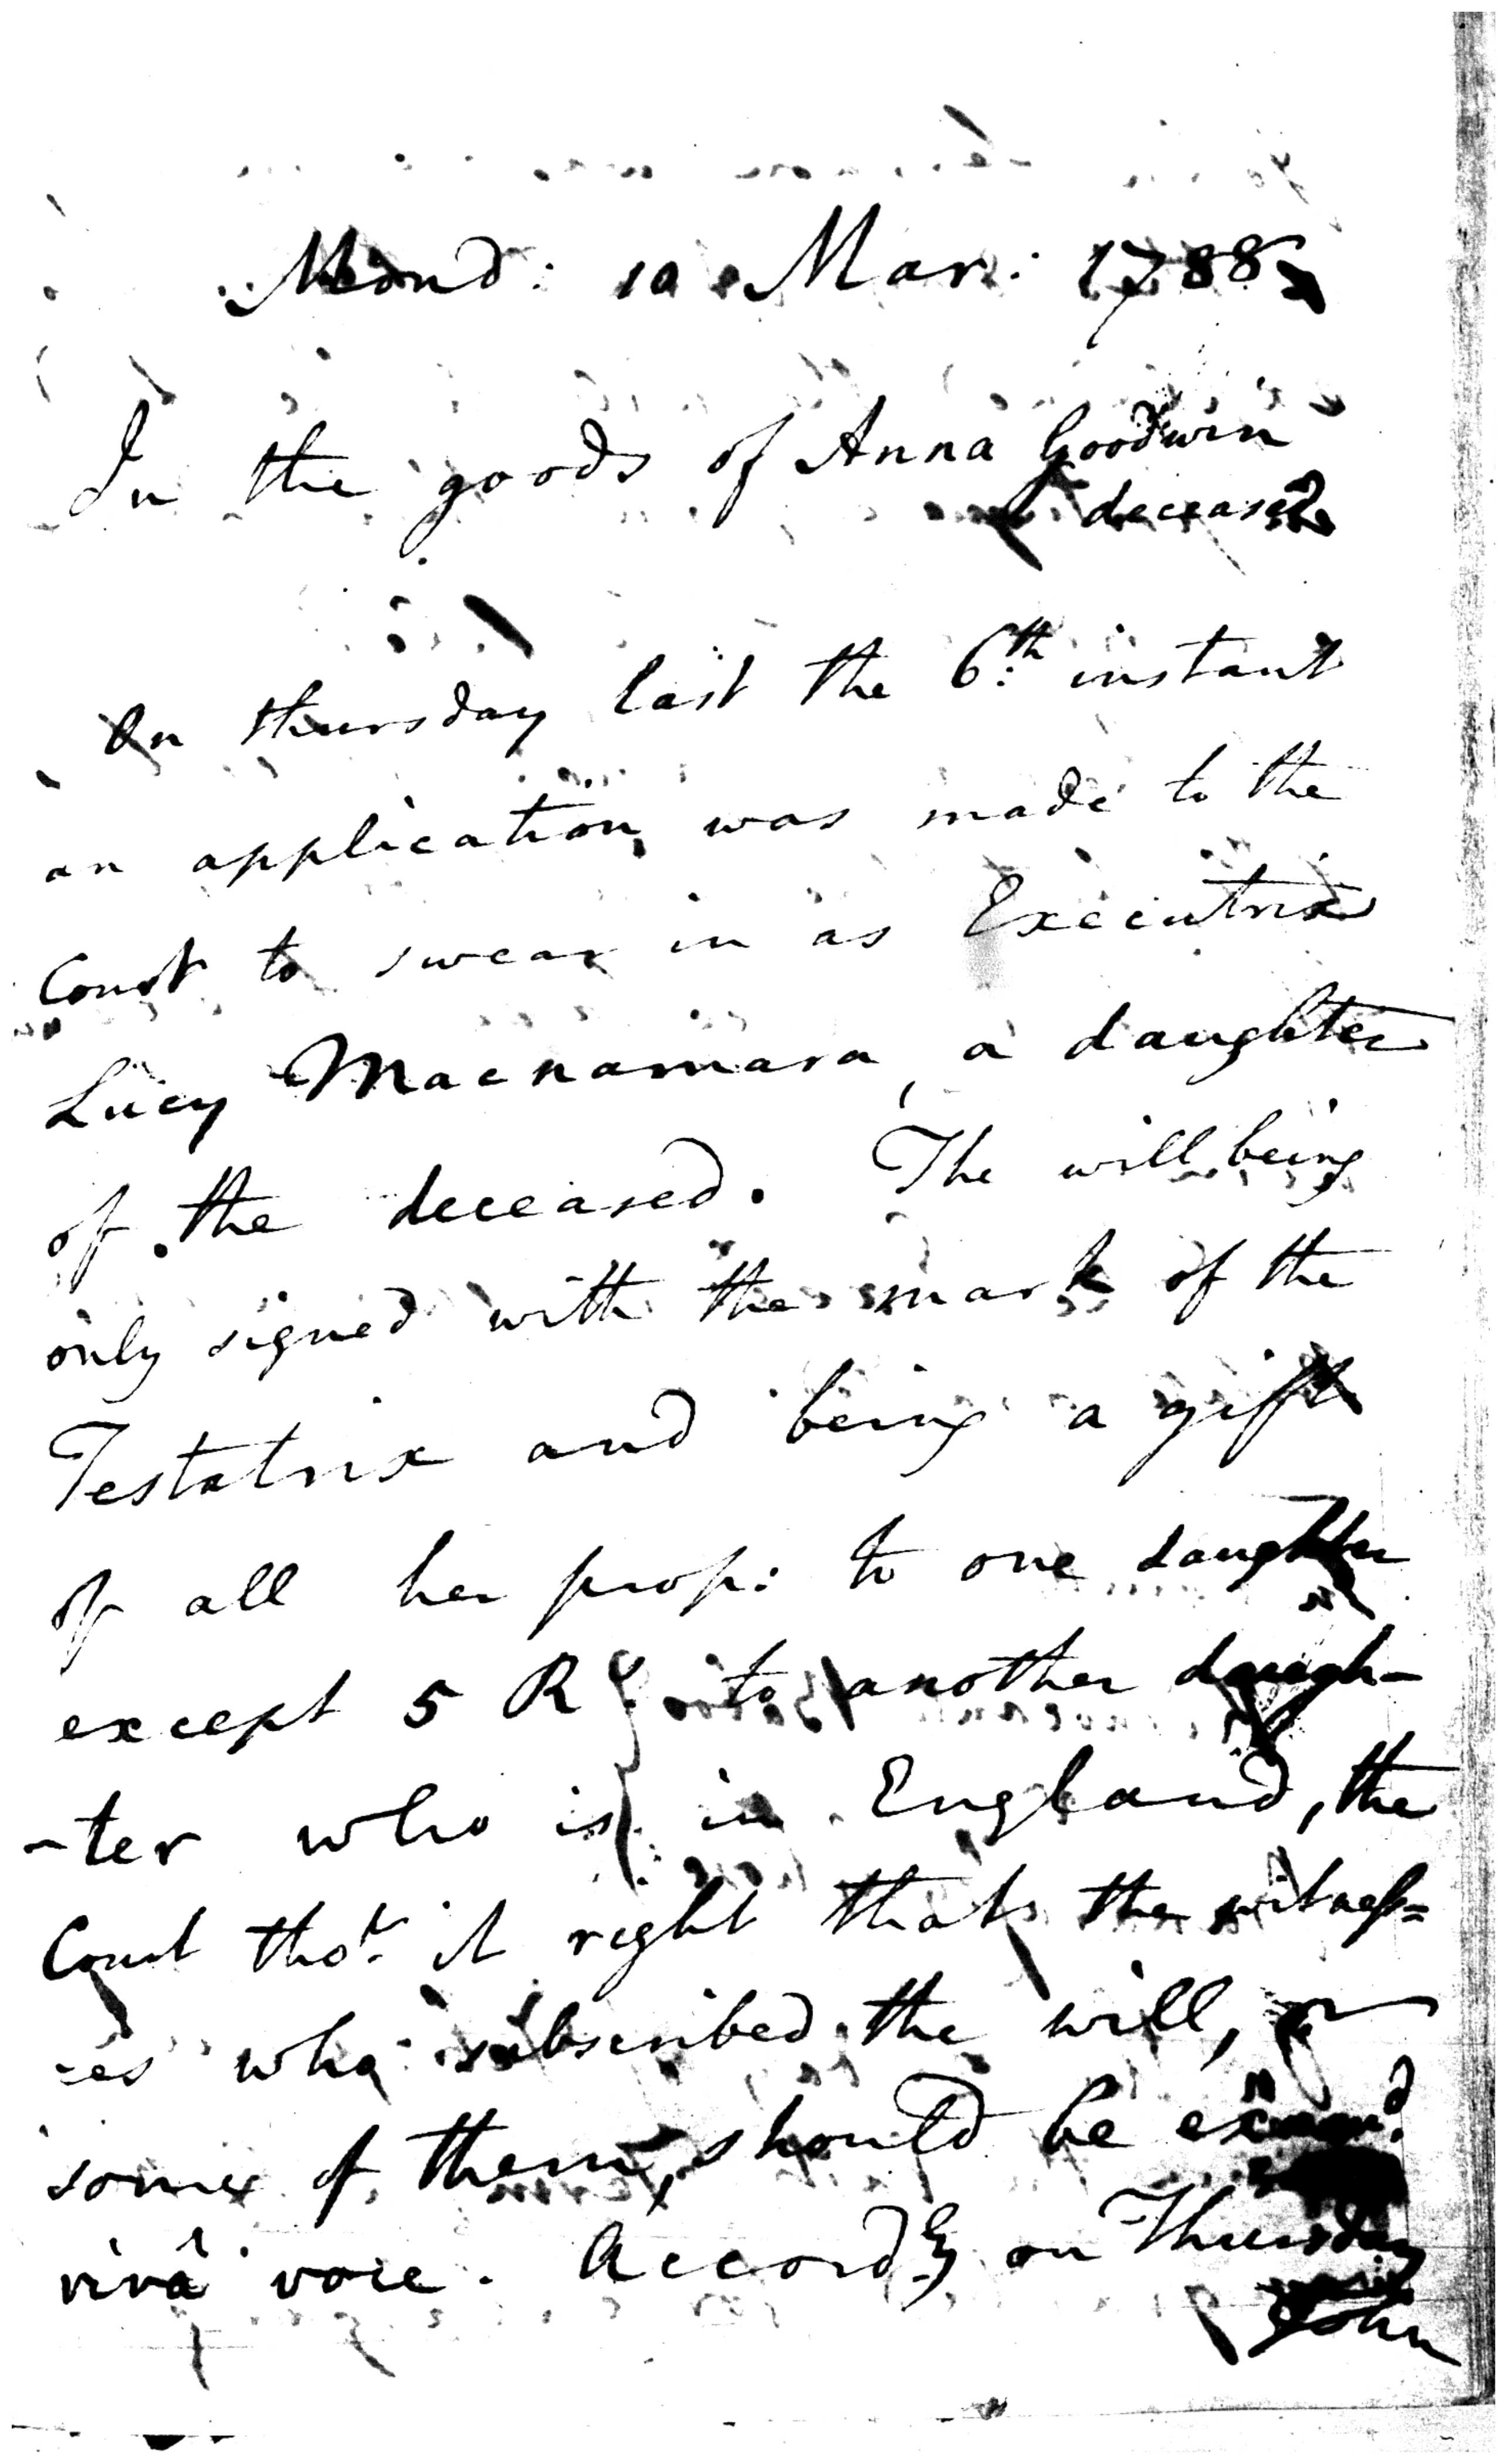 Mond: 10 Mar: 1788
In the goods of Anna Goodwin
deceased
On thursday last the 6th: instant
an application was made to the
Court to swear in as Executrix
Lucy Macnamara, a daughter
of the deceased. The will being
only signed with the mark of the
Testatrix and being a gift
of all her prop: to one daughter
except 5 Rs to another daugh-
-ter who is in England, the
Court tho.t it right that the witness=
=es who subscribed the will, or
some of them, should be exam.d
vivâ voce. Accord.ly on Thursday
John